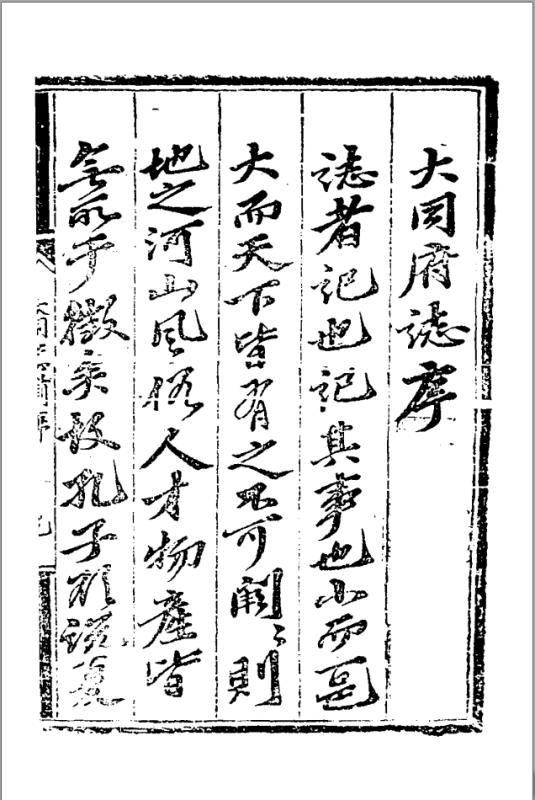 大同府誌序
誌者記也記其事也小而邑
大而天下皆有之不可闕〻則
地之河山風俗人才物産皆
無所于徵矣故孔子欲說夏